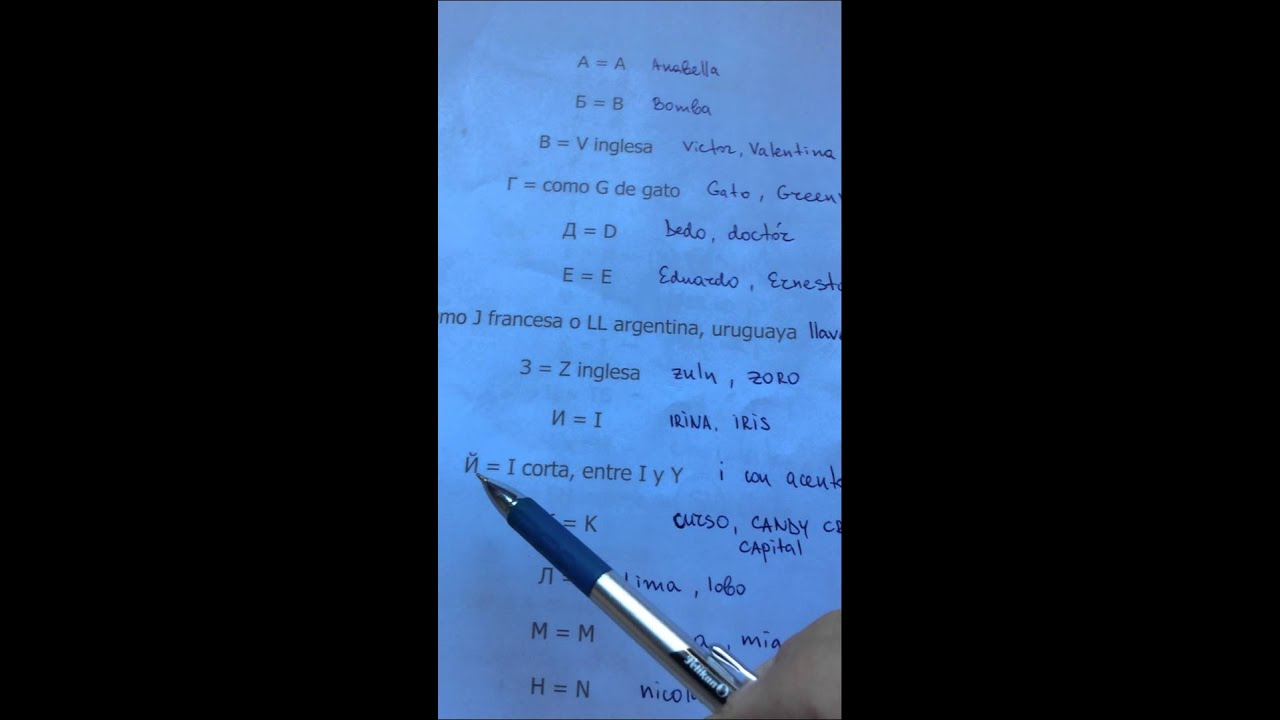 А = A Anabella
Б = B Bomba
В = V inglesa Victor, Valentina
Г = como G de gato Gato, Green
Д = D Dedo, doctór
Е = E Eduardo, Ernesto
J francesa o LL argentina, uruguaya
З = Z inglesa zulu, ZORO
И = I IRINA, IRIS
Й = I corta, entre I y Y i con
= K CURSO, CANDY
CAPital
Л lima, lobo
М = M mia
Н = N
Pelikan